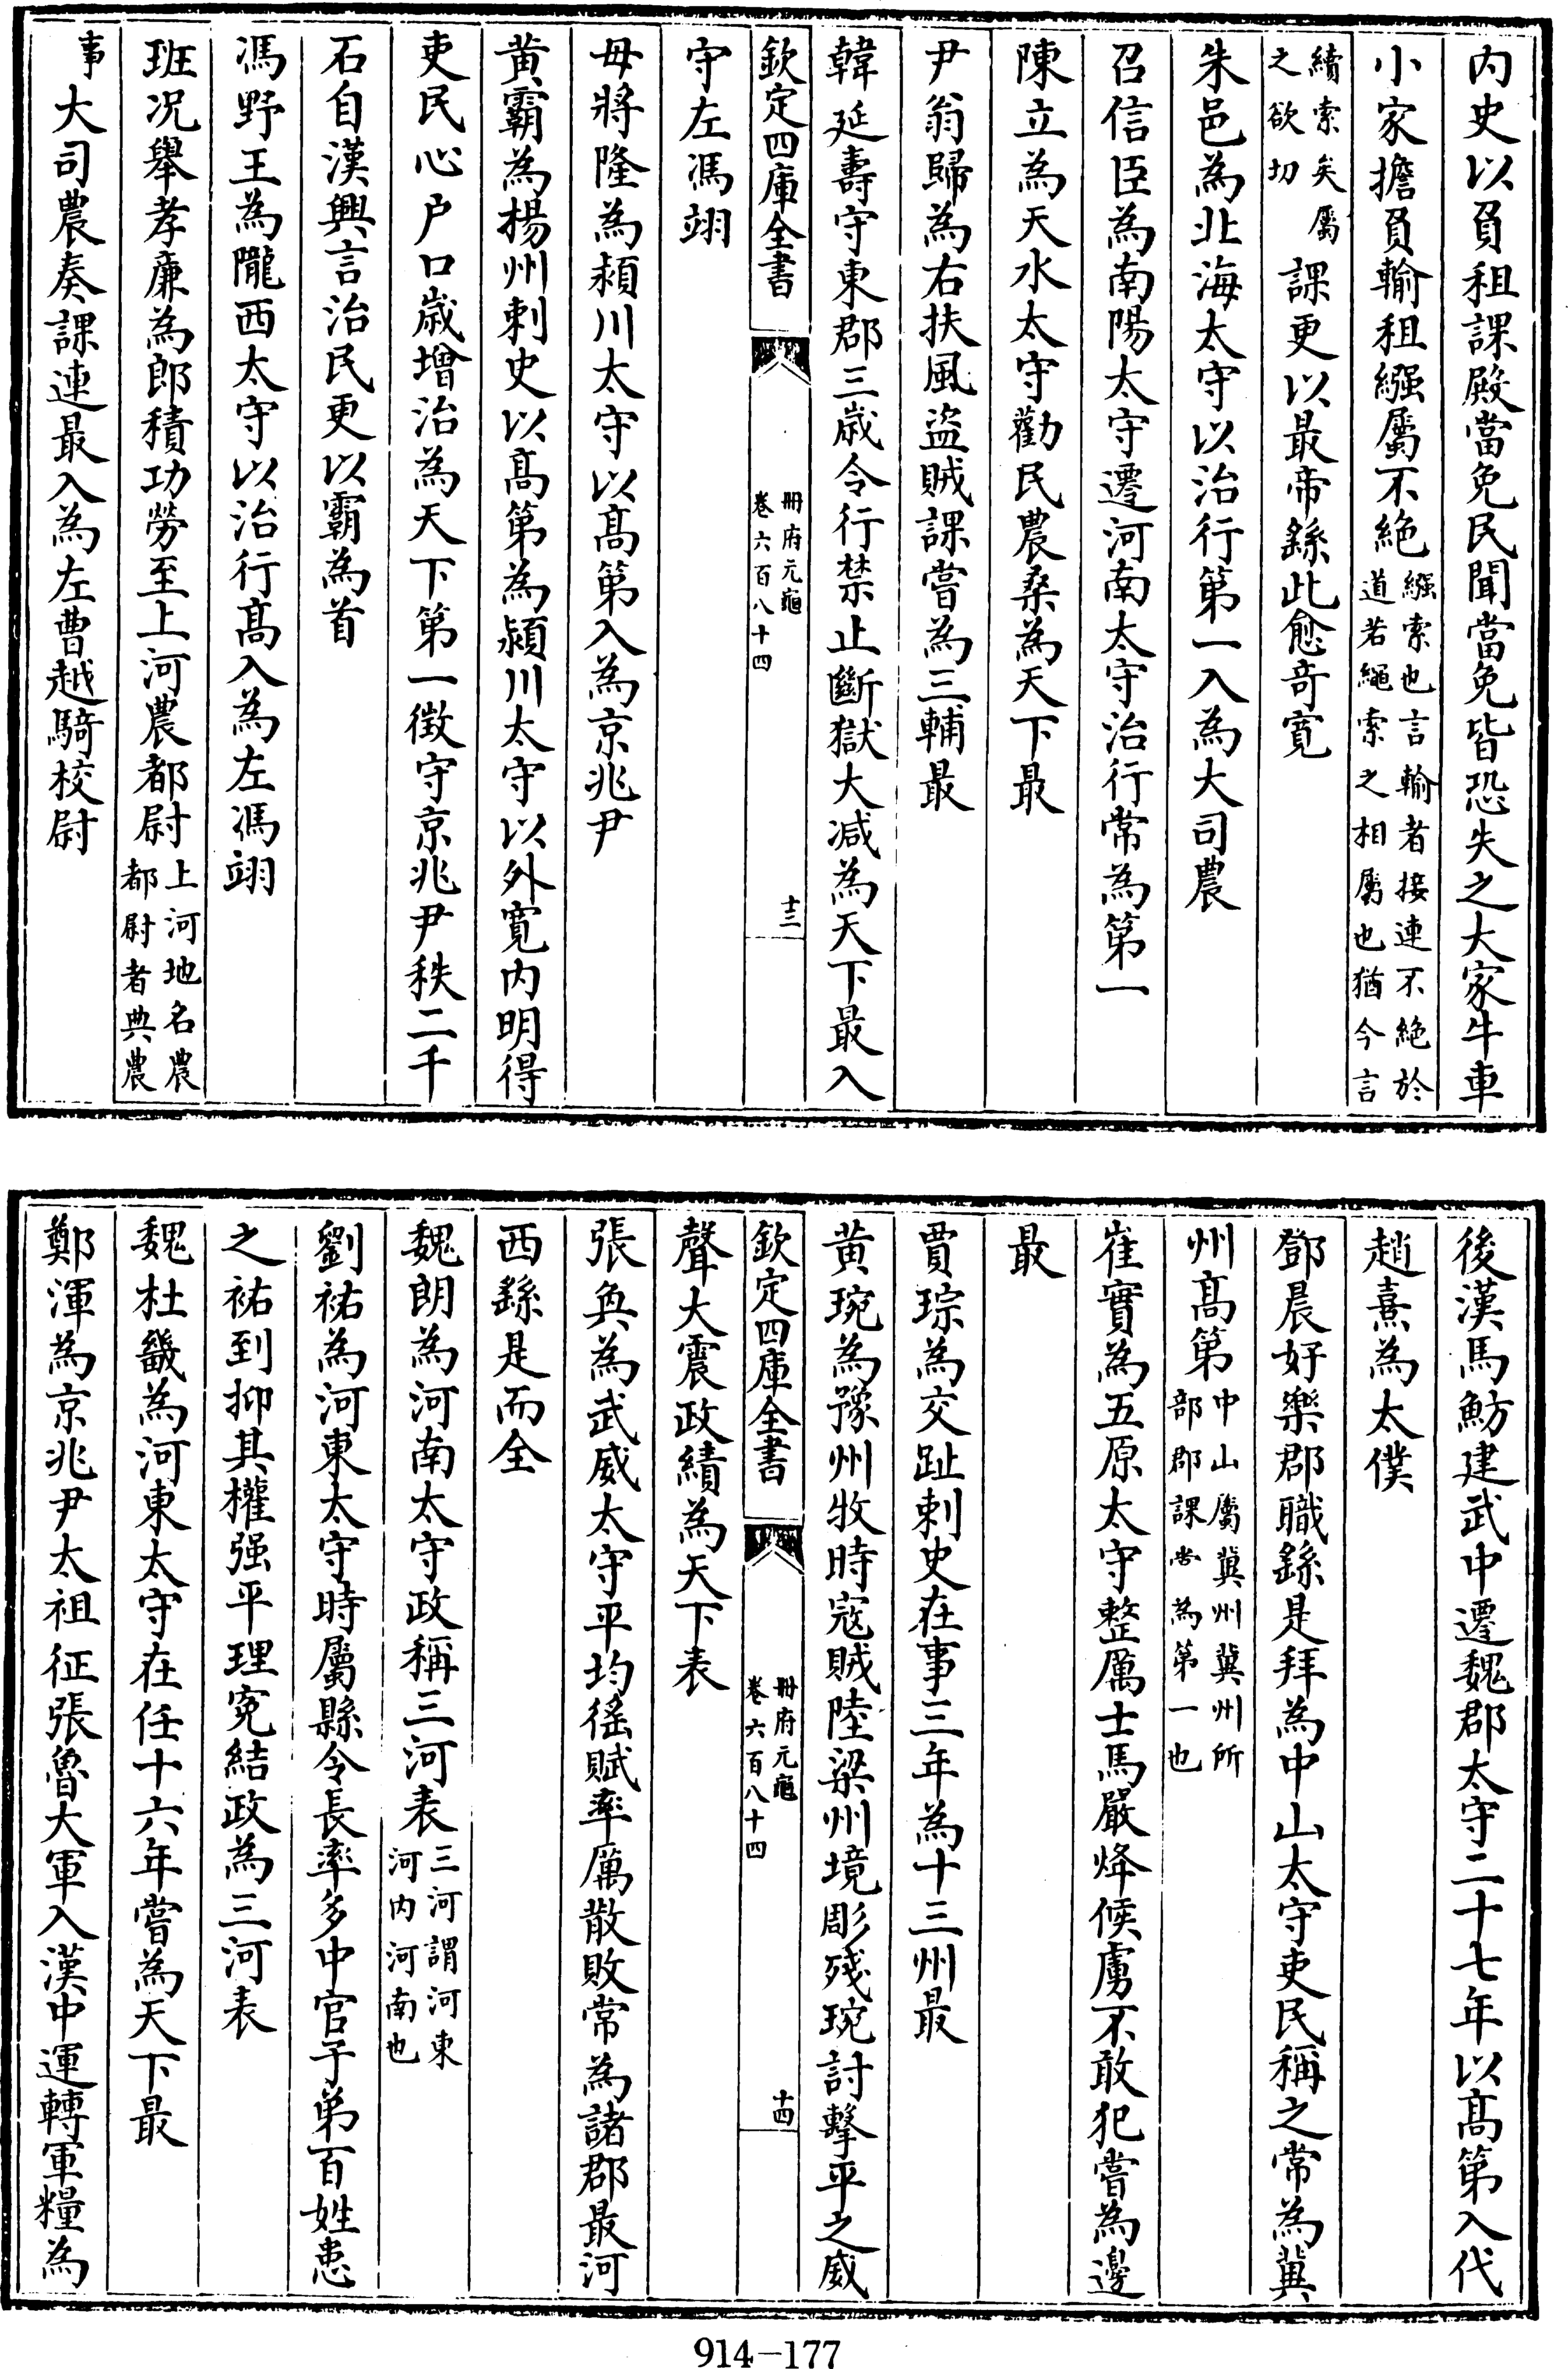 内史以負租課殿當免民聞當免皆恐失之大家牛車
小家擔負輸租繦屬不絶繦索也言輸者接連不絶於道若繩索之相屬也猶今言
續索矣屬之欲切課更以最帝繇此愈奇寛
朱邑為北海太守以治行第一入為大司農
召信臣為南陽太守遷河南太守治行常為第一
陳立為天水太守勸民農桑為天下最
尹翁歸為右扶風盗賊課嘗為三輔最
韓延壽守東郡三歳令行禁止斷獄大减為天下最入
欽定四庫全書
冊府元龜
卷六百八十四
十三
守左馮翊
毋將隆為潁川太守以髙第入為京兆尹
黄霸為楊州刺史以髙第為潁川太守以外寛内明得
吏民心户口歳增治為天下第一徴守京兆尹秩二千
石自漢興言治民吏以霸為首
馮野王為隴西太守以治行髙入為左馮翊
班况舉孝廉為郎積功勞至上河農都尉上河地名農都尉者典農
事大司農奏課連最入為左曹越騎校尉
後漢馬魴建武中遷魏郡太守二十七年以髙第入代
趙憙為太僕
鄧晨好樂郡職繇是拜為中山太守吏民稱之常為冀
州髙第中山屬冀州冀州所部郡課常為第一也
崔實為五原太守整厲士馬嚴烽候虜不敢犯嘗為邊
最
賈琮為交趾刺史在事三年為十三州最
黄琬為豫州牧時寇賊陸梁州境彫殘琬討擊平之威
欽定四庫全書
冊府元龜
卷六百八十四
十四
聲大震政績為天下表
張奐為武威太守平均徭賦率厲散敗常為諸郡最河
西繇是而全
魏朗為河南太守政稱三河表三河謂河東河内河南也
劉祐為河東太守時屬縣令長率多中官子弟百姓患
之祐到抑其權强平理寃結政為三河表
魏杜畿為河東太守在任十六年嘗為天下最
鄭渾為京兆尹太祖征張魯大軍入漢中運轉軍糧為
914-177